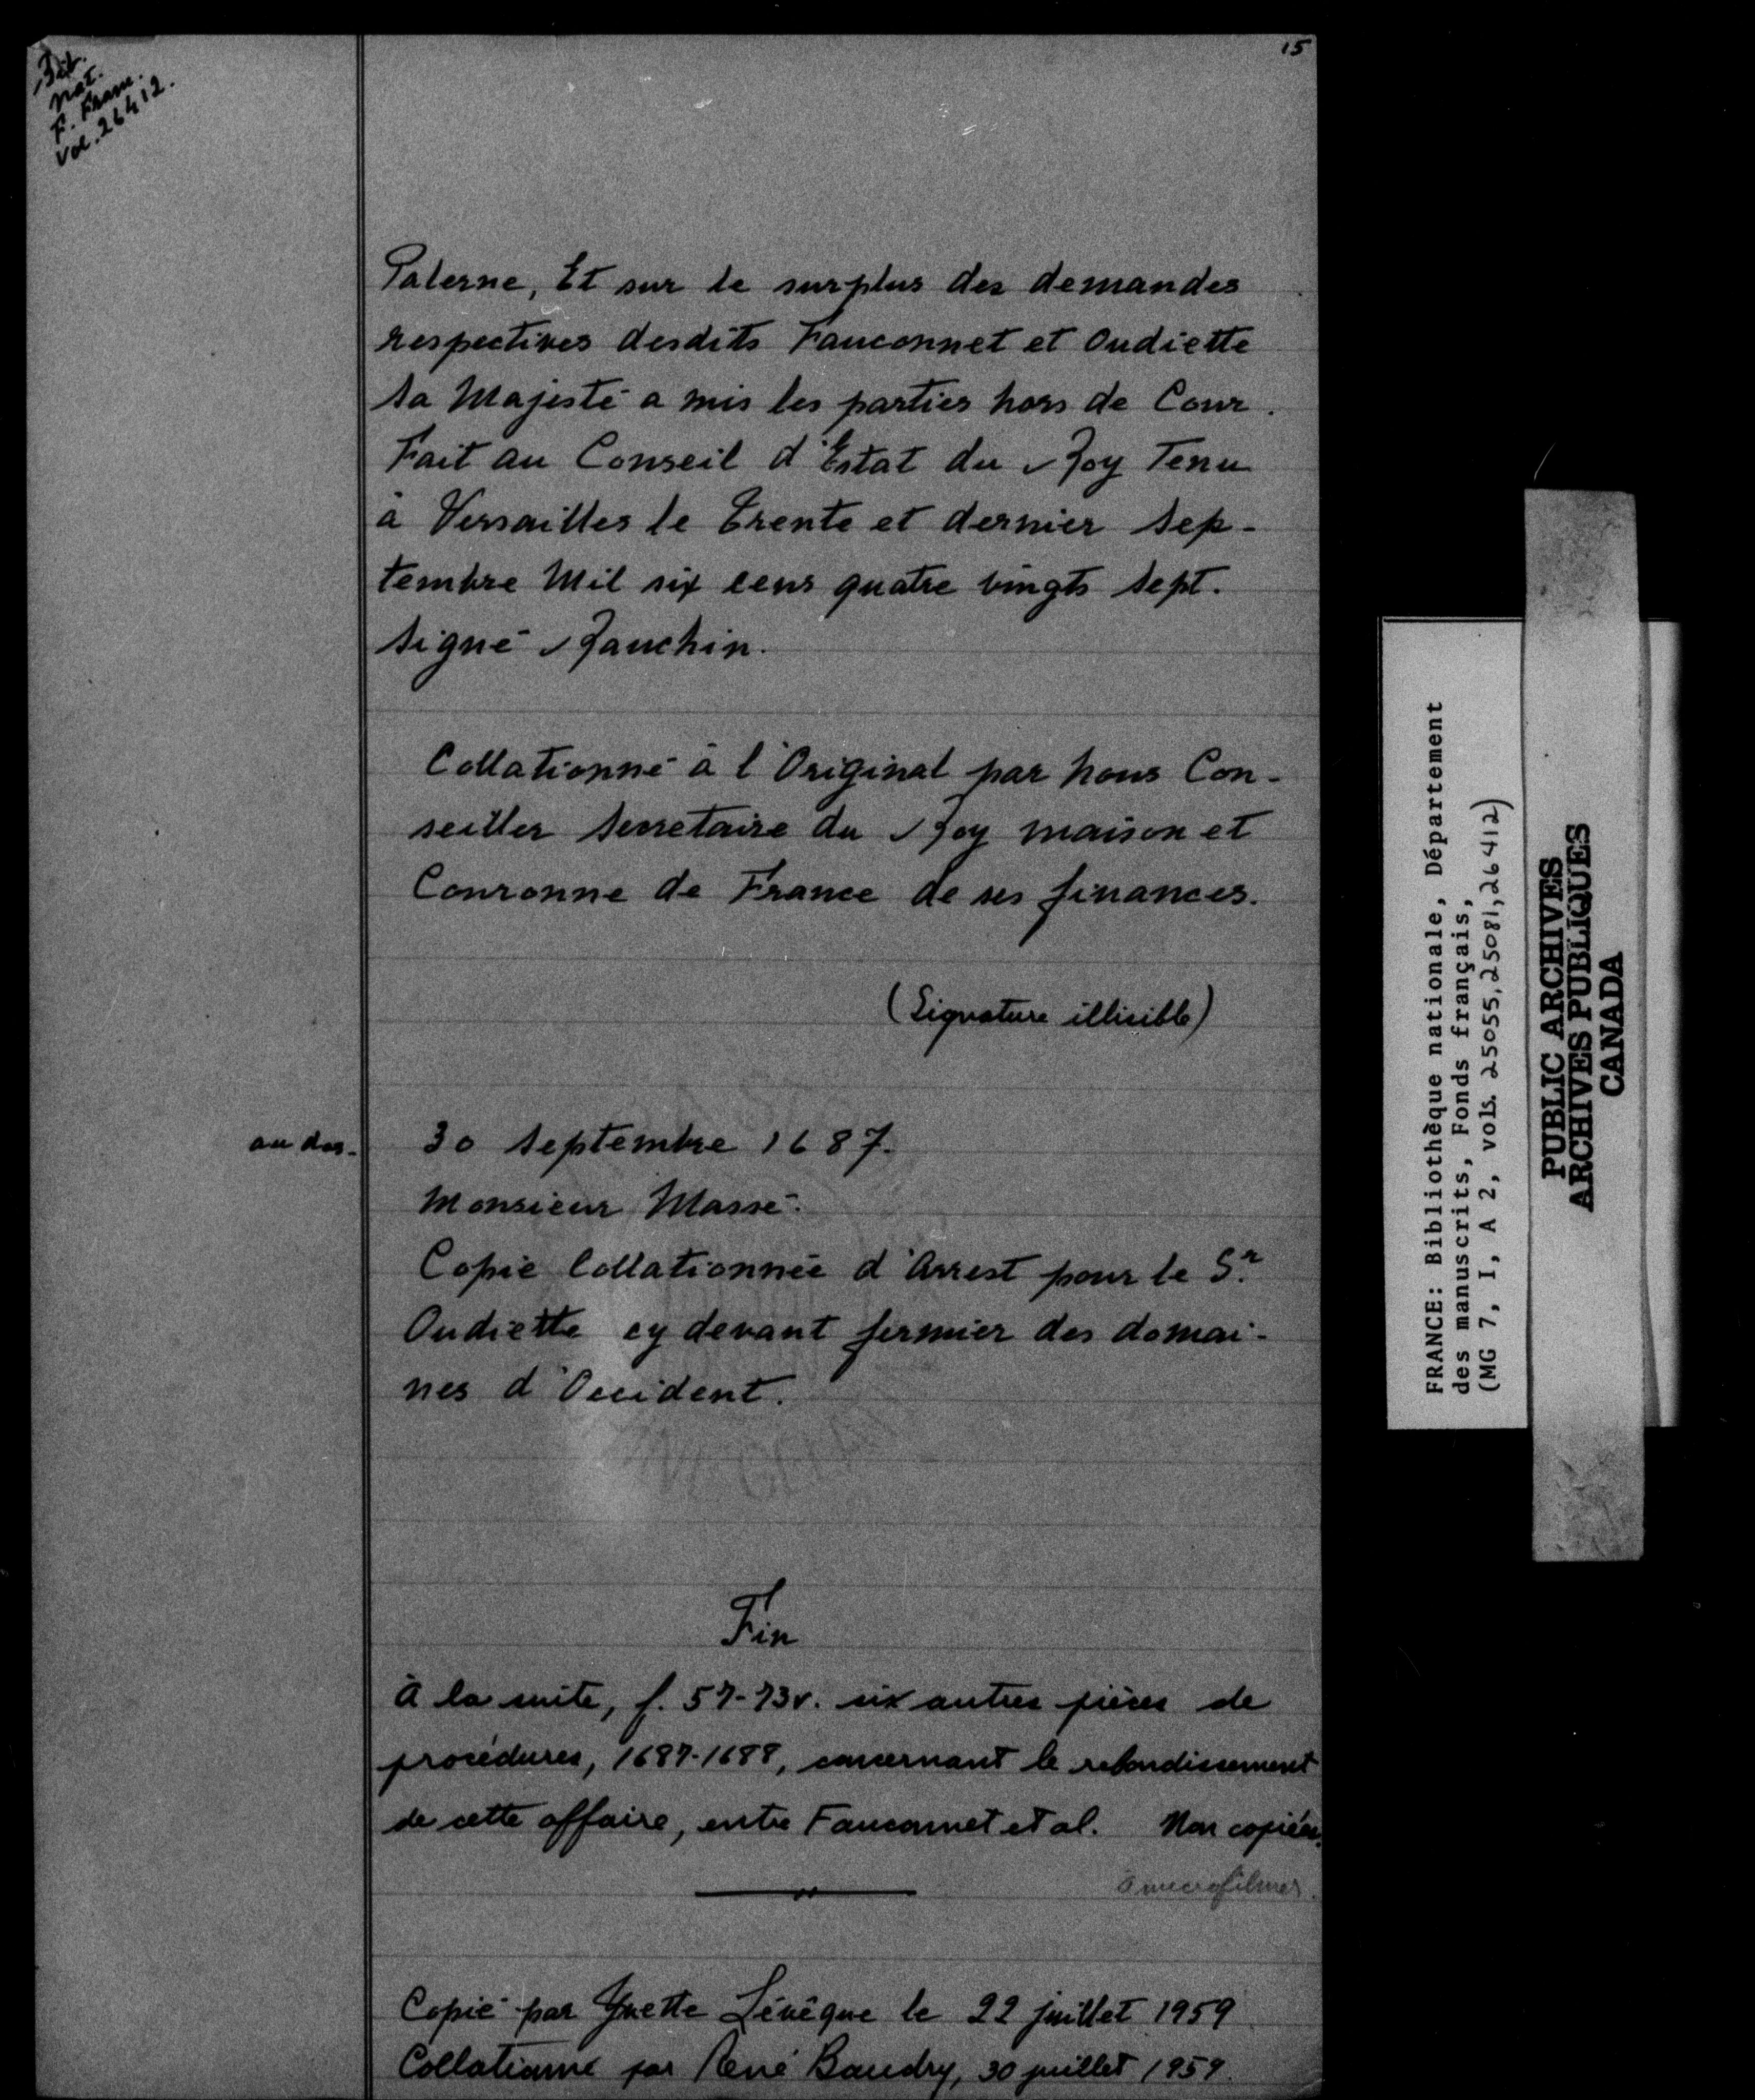 15
Bib.
nat.
F. Franc.
Vol. 26412.
Palerne, Et sur le surplus des demandes
respectives desdits Fauconnet et Oudiette
Sa Majesté a mis les parties hors de Cour.
Fait au Conseil d'Estat du Roy Tenu
à Versailles le Trente et dernier Sep-
tembre Mil six cens quatre vingts Sept.
Signé Ranchin.
Collationné à l'Original par nous Con-
seiller Secretaire du Roy maison et
Couronne de France de ses finances.
(Signature illisible)
au dos.
30 Septembre 1687.
Monsieur Massé.
Copie Collationnée d'Arrest pour le Sr.
Oudiette cy devant fermier des domai-
nes d'Occident.
Fin
À la suite, f. 57-73v. six autres pièces de
procédures, 1687-1688, concernant le rebondissement
de cette affaire, entre Fauconnet et al. Non copiées.
à microfilmer.
Copié par Yvette Lévêque le 22 juillet 1959
Collationné par René Baudry, 30 juillet 1959.
FRANCE: Bibliothèque nationale, Département
des manuscrits, Fonds français,
(MG 7, I, A 2, vols. 25055, 25081, 26412)
PUBLIC ARCHIVES
ARCHIVES PUBLIQUES
CANADA